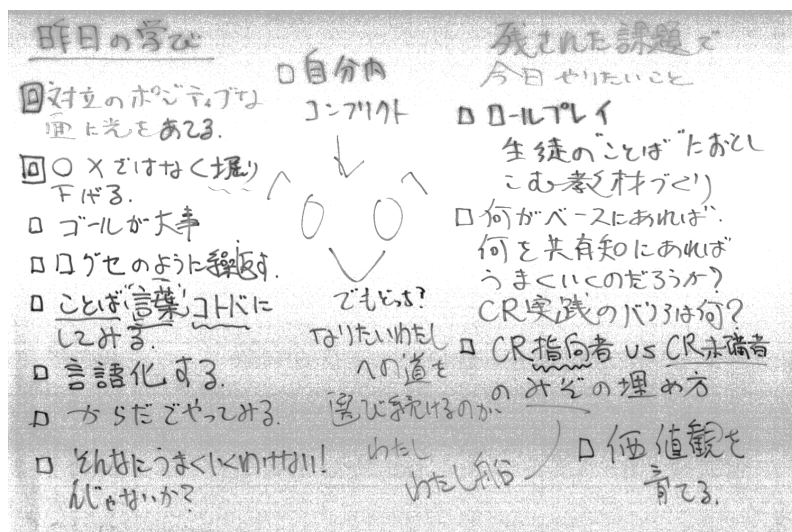 昨日の学び
対立のポジティブな
面に光をあてる.
○×ではなく掘り
下げる.
ゴールが大事
口グセのように繰返す.
ことば"言葉"コトバに
してみる.
言語化する.
からだでやってみる.
そんなにうまくいくわけない!
んじゃないか?
自分内
コンフリクト
でもどっち?
なりたいわたし
への道を
選び続けるのか、
わたし
わたし船
残された課題で
今日やりたいこと
ロールプレイ
生徒の"ことば"におとし
こむ教材づくり
何がベースにあれば、
何を共有知にあれば
うまくいくのだろうか?
CR実践のバリアは何?
CR指向者 vs CR未満者
のみぞの埋め方
価値観を
育てる.